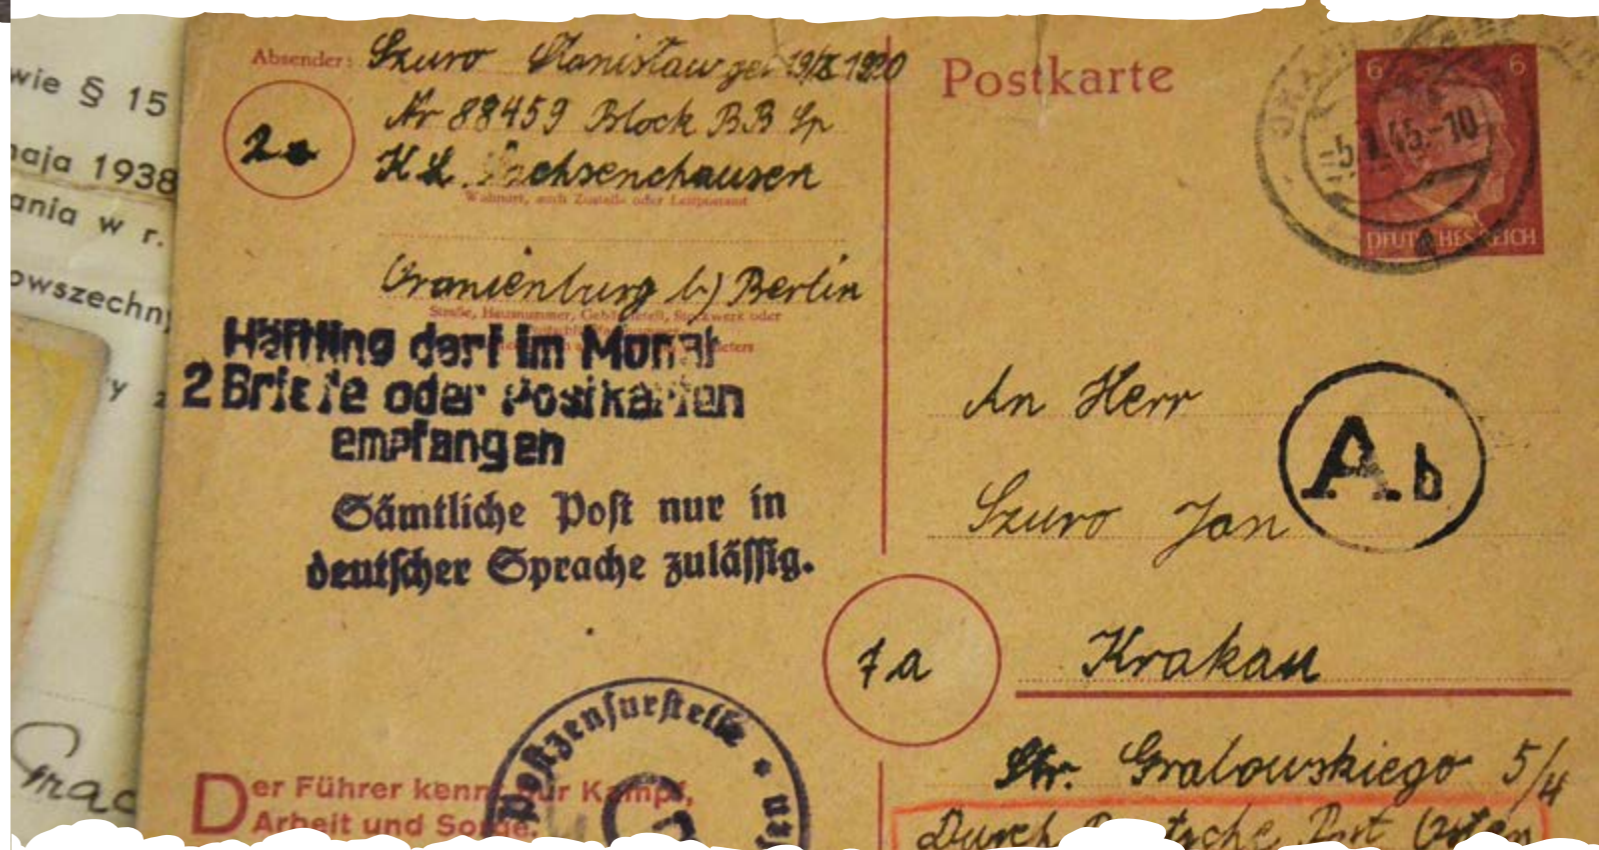 wie § 15
maja 1938
ania w r.
owszechny
y z
Grac
Absender: Szuro Stanisław geb 19/X 1920
2a
Nr 88459 Block BB Sp
K L. Sachsenchausen
Wohnort, auch Zustell- oder Leitpostamt
Oranienburg b) Berlin
Straße, Hausnummer, Gebäudeteil, Stockwerk oder
Häftling darf im Monat
2 Briefe oder Postkarten
empfangen
Sämtliche Post nur in
deutscher Sprache zulässig.
Postzensurstelle *
Der Führer kennt nur Kampf,
Arbeit und Sorge.
Postkarte
6 6
5.1.45.-10
DEUTSCHES REICH
An Herr
Ab
Szuro Jan
7a
Krakau
Str. Grabowskiego 5/4
Durch Deutsche Post Osten